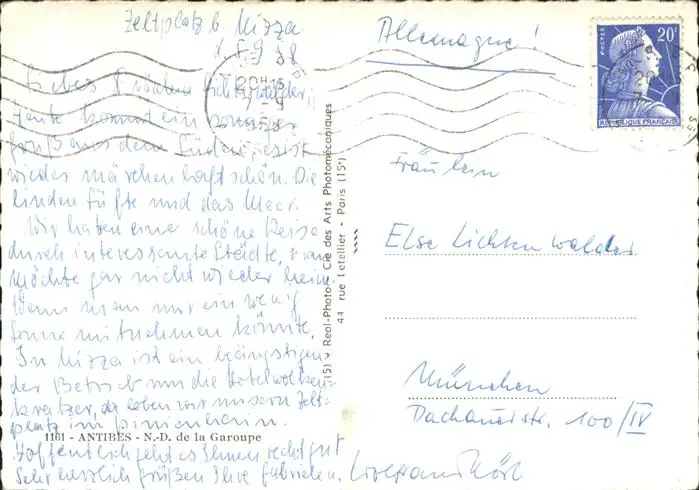 Zeltplatz b. Nizza
58
Liebes Fräulein Lichtenwalder,
heute kommt ein sonniger
Gruß aus dem Süden, es ist
wieder märchenhaft schön. Die
linden Lüfte und das Meer.
Wir haben eine schöne Reise
durch interessante Städte, man
möchte gar nicht wieder heim.
Wenn man nur ein wenig
Sonne mitnehmen könnte.
In Nizza ist ein beängstigen-
der Betrieb um die Hotelwolken-
kratzer, da loben wir unsern Zelt-
platz im Pinienhain.
1161 - ANTIBES - N.-D. de la Garoupe
Hoffentlich geht es Ihnen recht gut
Sehr herzlich grüßen Ihre Gabriele u. Wolfram
(S) - Real-Photo - Cie des Arts Photomécaniques
44 rue Letellier - Paris (15e)
Allemagne!
POSTES
20F
REPUBLIQUE FRANÇAISE
Fräulein
Else Lichtenwalder
München
Dachauerstr. 100/IV